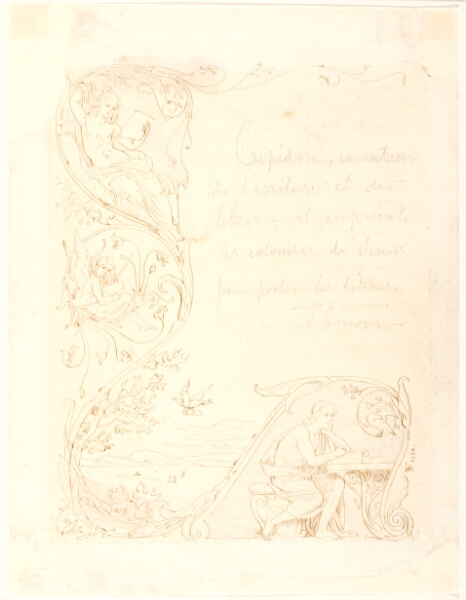 Cupidon, inventeur
de l'écriture et des
lettres ; il emprunte
les colombes de Vénus
pour porter les lettres
d'Amour